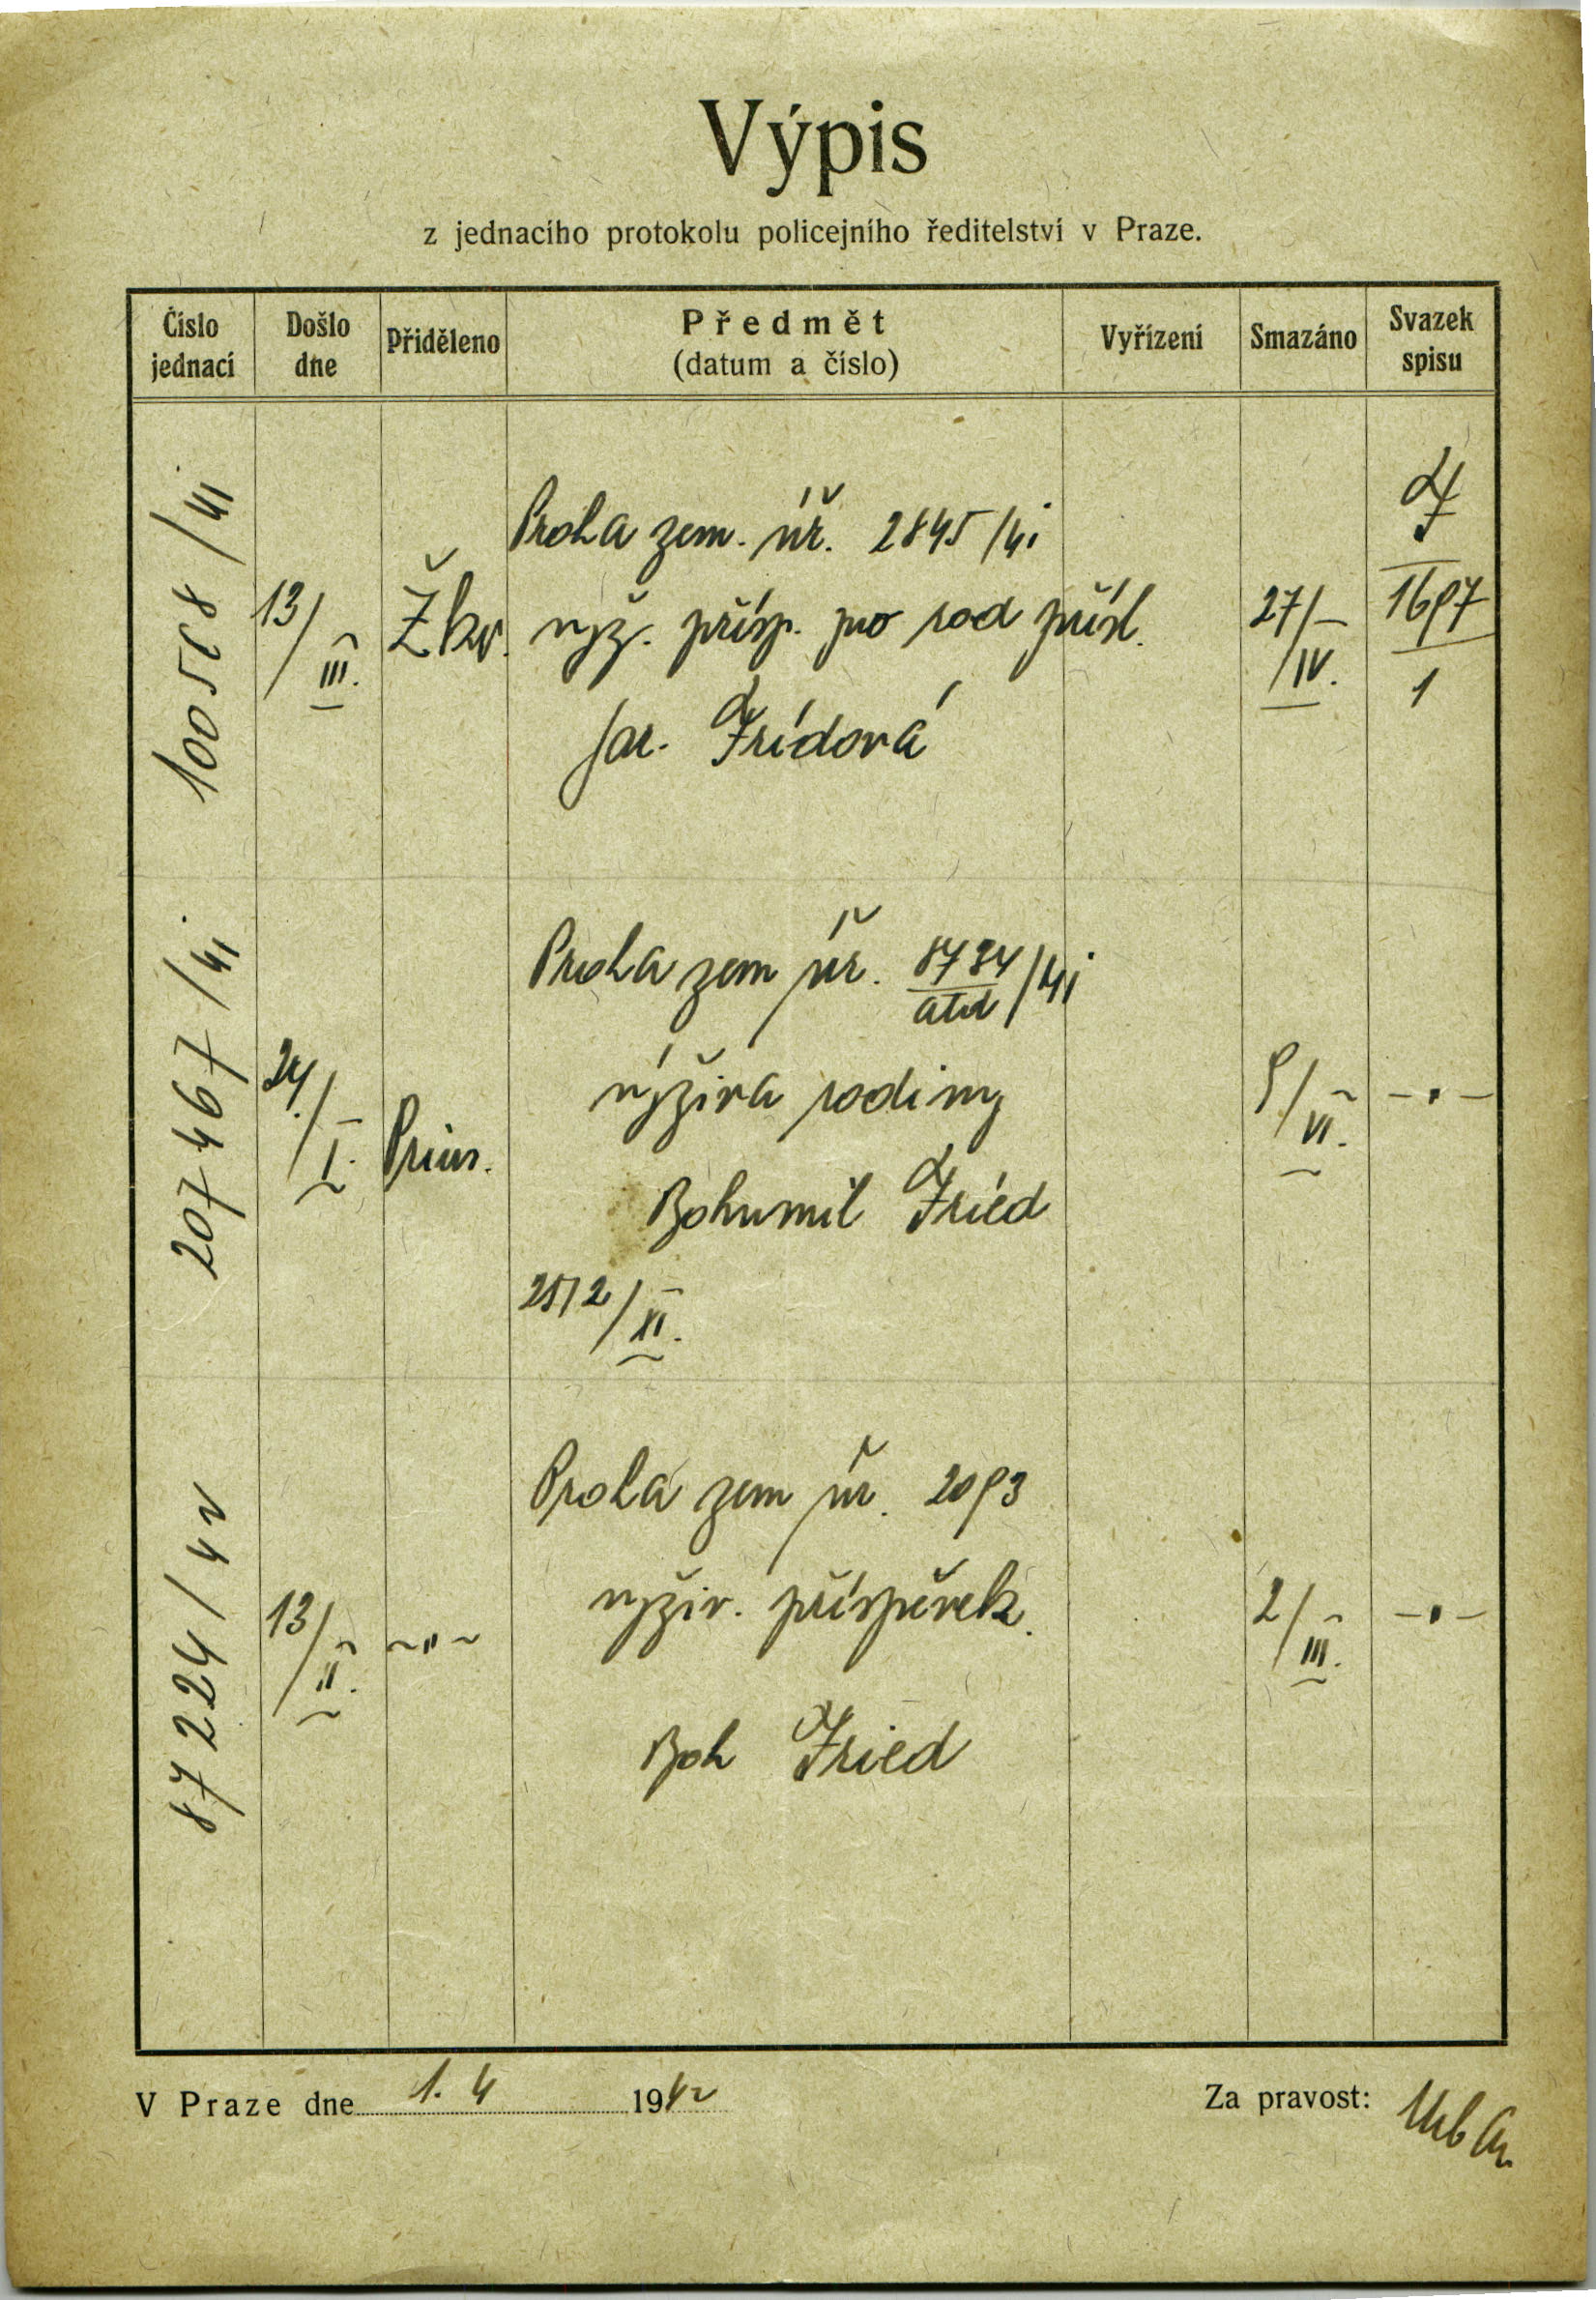 Výpis
z jednacího protokolu policejního ředitelství v Praze.
Číslo jednací
Došlo dne
Přiděleno
Předmět
(datum a číslo)
Vyřízení
Smazáno
Svazek spisu
/41
13/III.
Žkv.
Praha zem. úř. 2845/41
vyž. přísp. pro rod přísl.
Jar. Frídová
27/IV.
F
1697
1
207467/41
24./I.
Praha zem úř. 8784/atd /41
výživa rodiny
Bohumil Fried
2512/XI.
9/VI.
-"-
87224/42
13/II.
-"-
Praha zem úř. 2093
vyživ. příspěvek.
Boh Fried
2/III.
-"-
V Praze dne 1. 4 1942
Za pravost: Urban